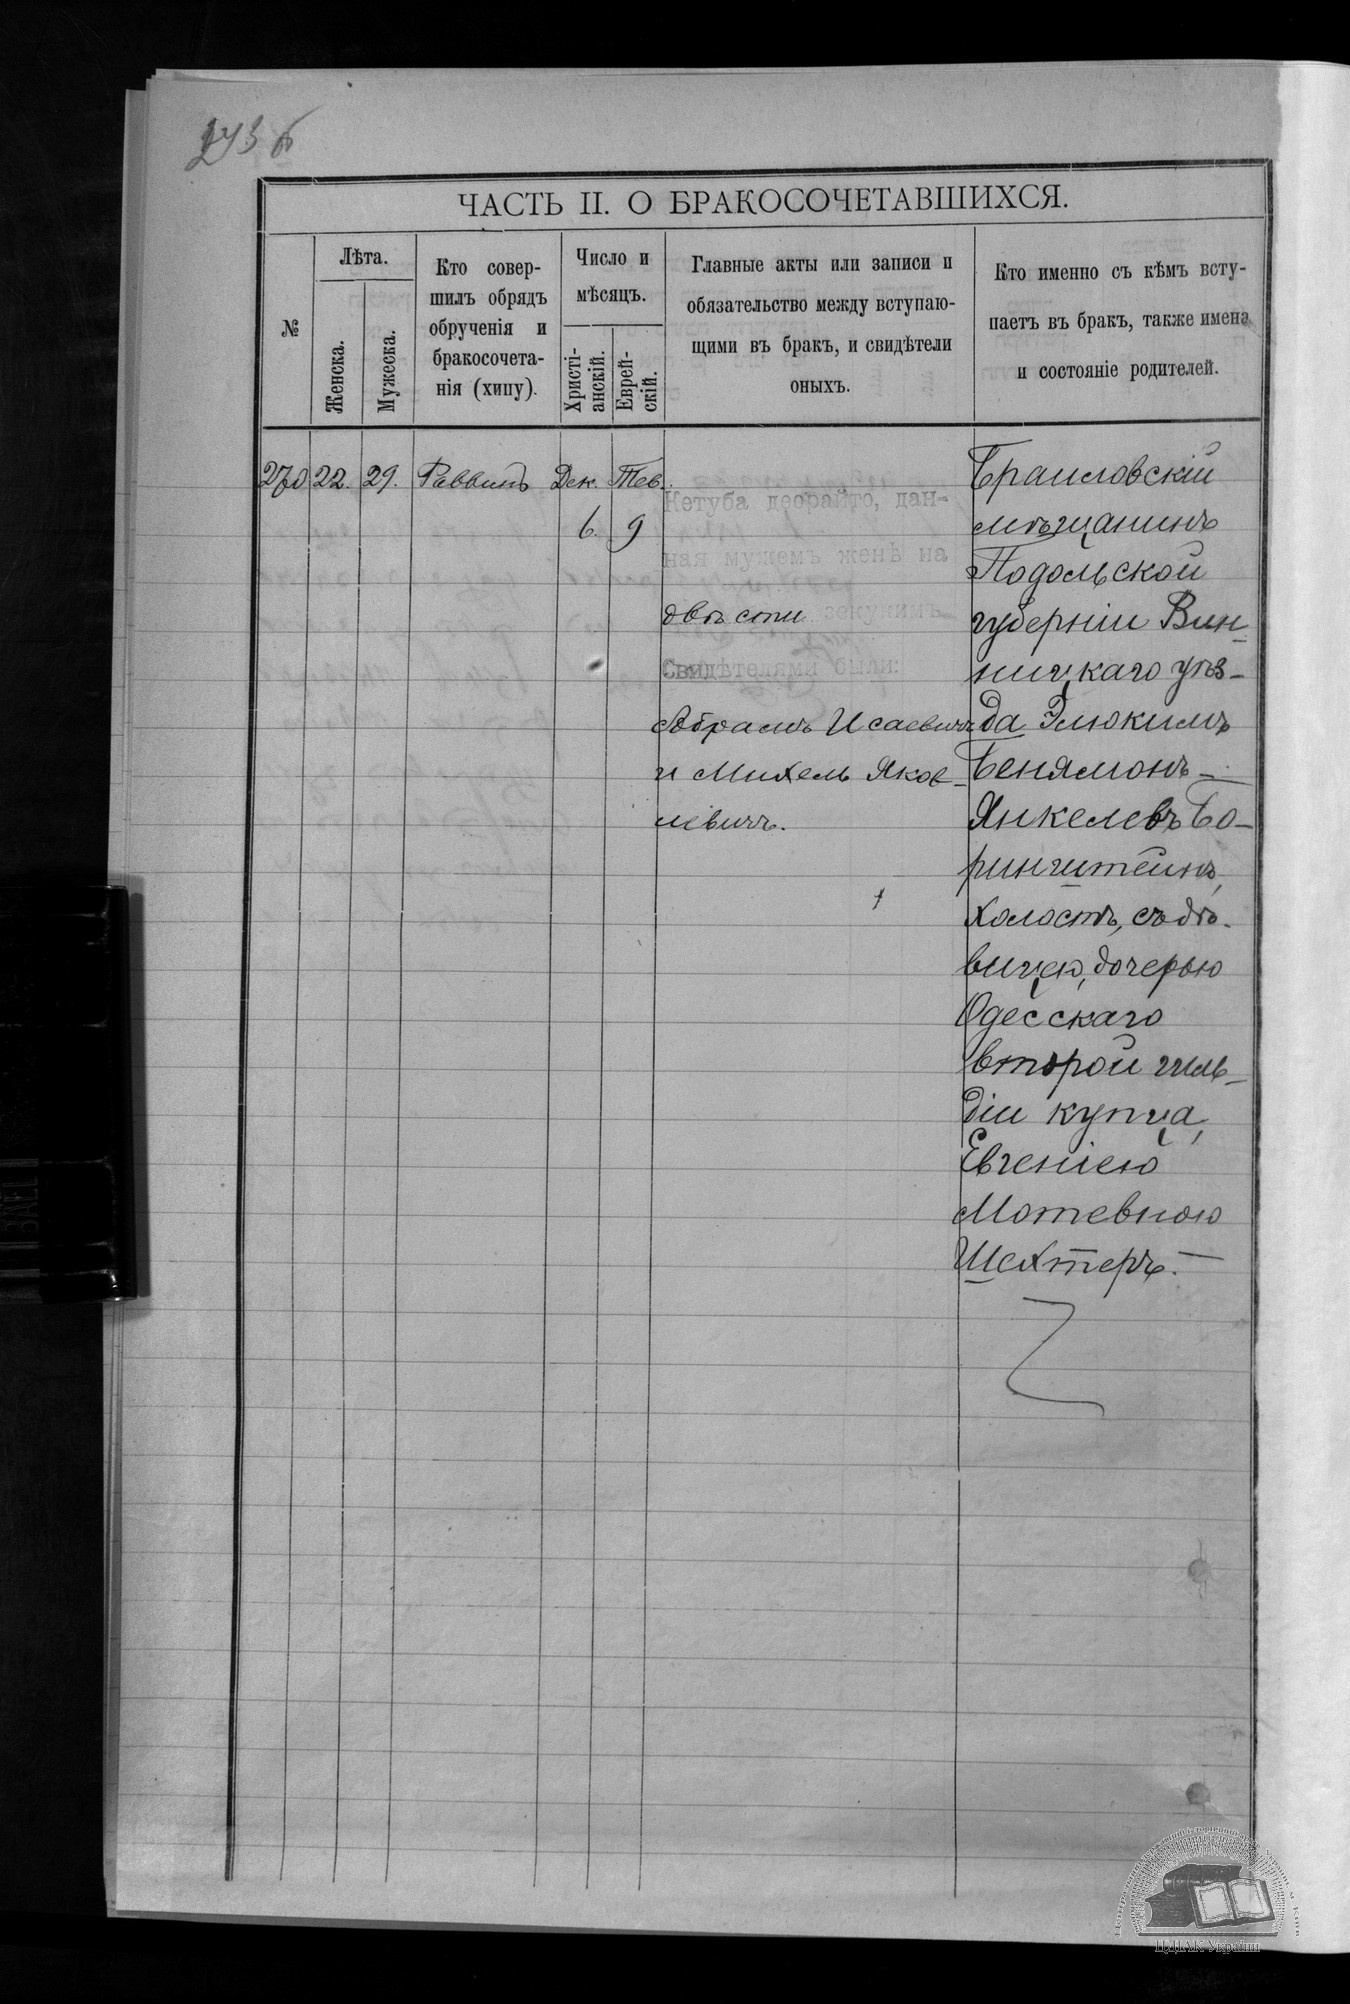 ЧАСТЬ II. О БРАКОСОЧЕТАВШИХСЯ.
№
Лѣта.
Женска.
Мужеска.
Кто совер-
шилъ обрядъ
обрученія и
бракосочета-
нія (хипу).
Число и
мѣсяцъ.
Христі-
анскій.
Еврей-
скій.
Главные акты или записи и
обязательство между вступаю-
щими въ брак, и свидѣтели
оныхъ.
Кто именно съ кѣмъ всту-
паетъ въ брак, также имена
и состояніе родителей.
270
22.
29.
Раввинъ
Дек.
6.
Тев.
9
Кетуба деорайто, дан-
ная мужемъ женѣ на
двѣсти зекукимъ
Свидѣтелями были:
Абрамъ Исаевичъ
и Михель Яков-
левичъ.
Браиловскій
мѣщанинъ
Подольской
губерніи Вин-
ницкаго уѣз-
да Элюкимъ
Бенямонъ-
Янкелевъ Бо-
ринштейнъ,
холостъ, съ дѣ-
вицею, дочерью
Одесскаго
второй гиль-
діи купца,
Евгеніею
Мотевною
Шехтеръ.
ЦДІАК України